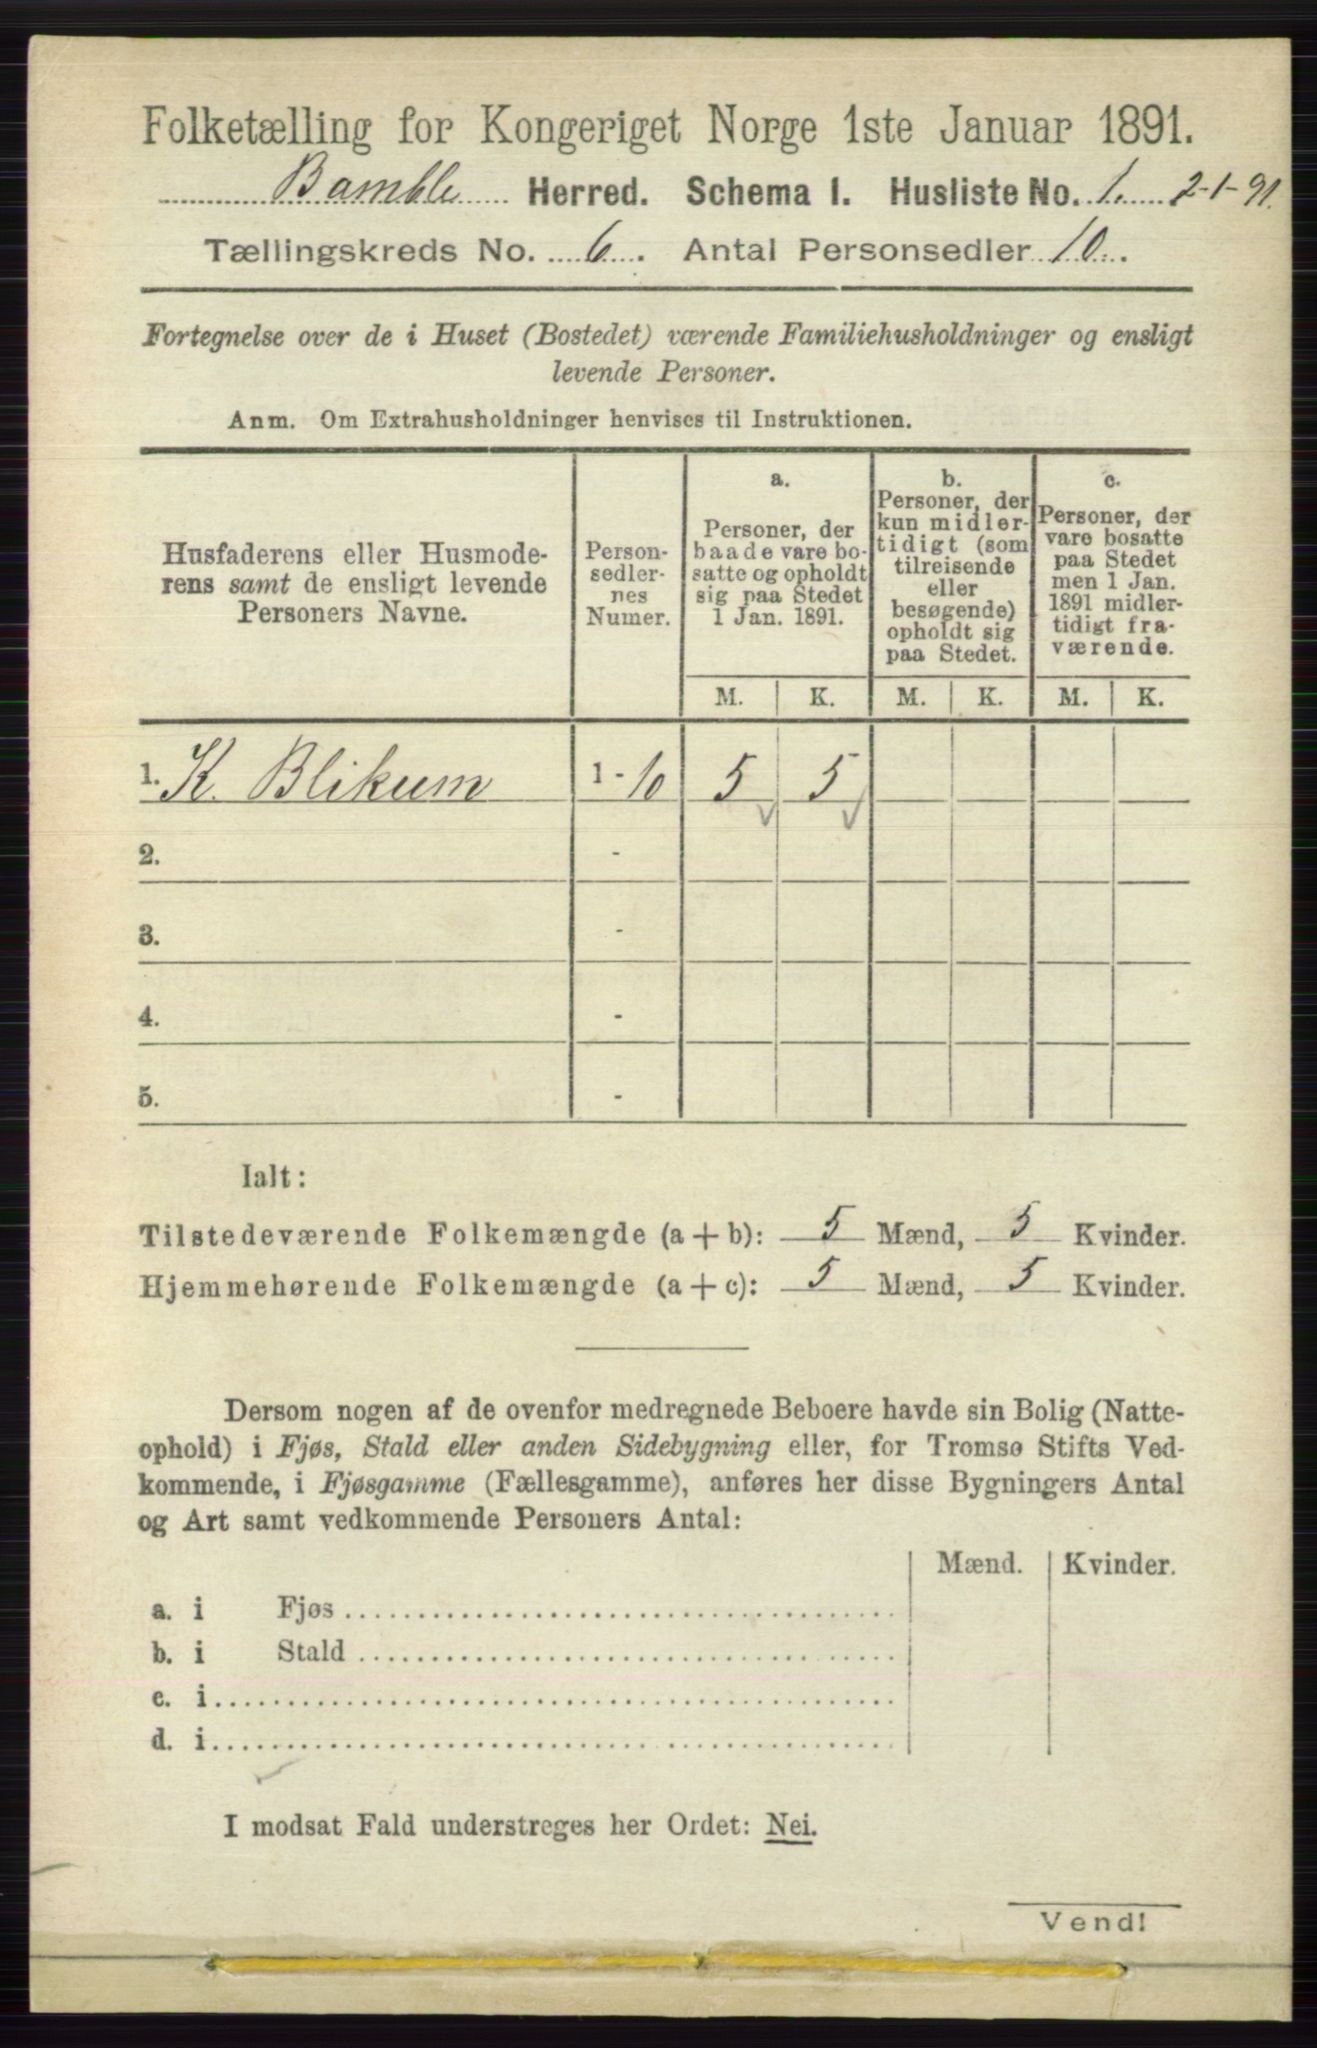 Folketælling for Kongeriget Norge 1ste Januar 1891.
Bamble Herred. Schema I. Husliste No. 1. 2-1-91.
Tællingskreds No. 6. Antal Personsedler 10.
Fortegnelse over de i Huset (Bostedet) værende Familiehusholdninger og ensligt
levende Personer.
Anm. Om Extrahusholdninger henvises til Instruktionen.
Husfaderens eller Husmode-
rens samt de ensligt levende
Personers Navne.
Person-
sedler-
nes
Numer.
a.
Personer, der
baade vare bo-
satte og opholdt
sig paa Stedet
1 Jan. 1891.
b.
Personer, der
kun midler-
tidigt (som
tilreisende
eller
besøgende)
opholdt sig
paa Stedet.
c.
Personer, der
vare bosatte
paa Stedet
men 1 Jan.
1891 midler-
tidigt fra-
værende.
M. K. M. K. M. K.
1. K. Blikum 1 - 10 5 5
2. -
3. -
4. -
5. -
Ialt:
Tilstedeværende Folkemængde (a + b): 5 Mænd, 5 Kvinder.
Hjemmehørende Folkemængde (a + c): 5 Mænd, 5 Kvinder.
Dersom nogen af de ovenfor medregnede Beboere havde sin Bolig (Natte-
ophold) i Fjøs, Stald eller anden Sidebygning eller, for Tromsø Stifts Ved-
kommende, i Fjøsgamme (Fællesgamme), anføres her disse Bygningers Antal
og Art samt vedkommende Personers Antal:
Mænd. Kvinder.
a. i Fjøs
b. i Stald
c. i
d. i
I modsat Fald understreges her Ordet: Nei.
Vend!